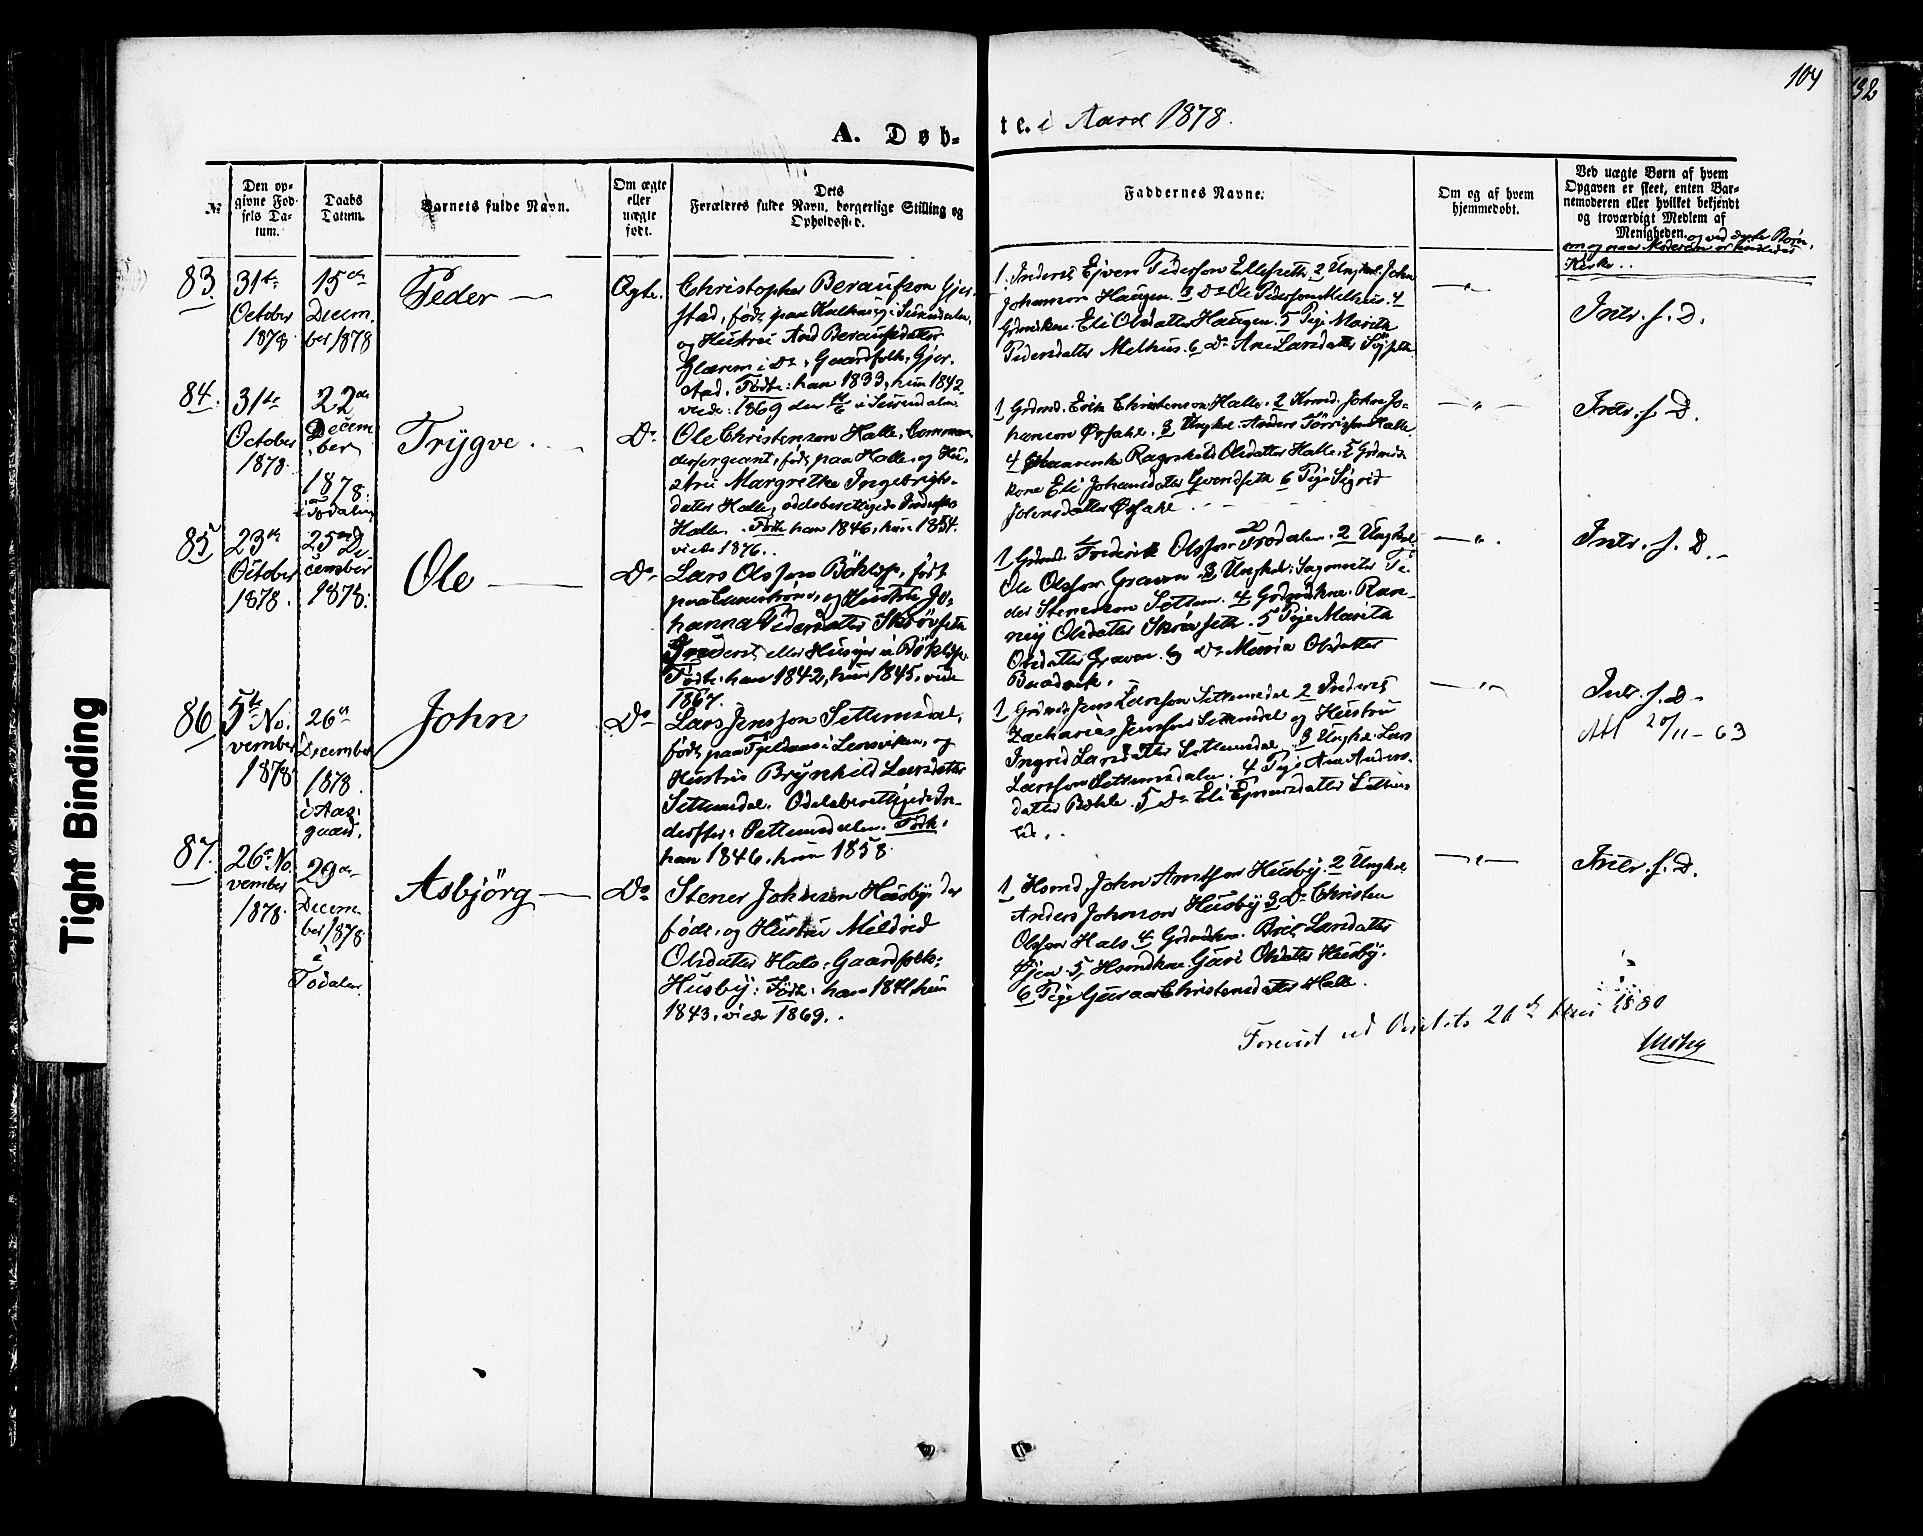 104
132
A. Døb-
te. i Aaret 1878.
№
Den op-
givne Fød-
sels Da-
tum.
Daabs
Datum.
Barnets fulde Navn.
Om ægte
eller
uægte
født.
Dets
Forældres fulde Navn, borgerlige Stilling og
Opholdssted.
Faddernes Navne.
Om og af hvem
hjemmedøbt.
Ved uægte Børn af hvem
Opgaven er skeet, enten Bar-
nemoderen eller hvilket bekjendt
og troværdigt Medlem af
Menigheden. og ved ægte Børn,
om og naar Moderen er
Kirke..
83
31te
October
1878
15de
Decem-
ber 1878
Peder
Ægte.
Christopher Beraufson Gjer-
stad, født paa i Surendalen,
og Hustru And Beraufsdatter
Glærem i Do, Gaardfolk, Gjer-
stad. Fødte: han 1833, hun 1842
viede: 1869 den i Surendalen
1. Inderst Ejven Pederson Ellefseth 2 Ungkal. John
Johanson Haugen. 3 Do Ole Pederson Melhus. 4
Grdmdkone. Eli Olsdatter Haugen. 5 Pige Marith
Pedersdatter Melhus. 6 Do Ane Larsdatter
Intr. s. D.
84.
31te
October
1878.
22de
Decem-
ber
1878.
i Todalen
Trygve.
Do
Ole Christenson Halle, Comman-
dersergeant, født paa Halle, og Hu-
stru Margrethe Ingebrigts-
datter Halle, odelsberettigede
Halle. Fødte han 1846, hun 1854.
viede 1876.
1 Grdmd. Erik Christenson Halle. 2 John Jo-
hanson Ørsahl. 3 Ungkal. Anders Halle.
4 Ragnhild Olsdatter Halle. 5 Grdmds-
kone Eli Johansdatter Qvendseth 6 Pige Sigrid
Johnsdatter Ørsahl.
Intr. s. D.
85
23de
October
1878.
25de De-
cember
1878.
Ole
Do
Lars Olsson Bøklep, født
paa og Hustru Jo-
hanna Pedersdatter Skrøvseth
Inderst, eller Husmd i Bøklep.
Fødte: han 1842, hun 1845, viede
1867.
1 Grdmd. Frederik Olsson Trodalen. 2 Ungkal.
Ole Olsson Graven. 3 Ungkal. Pe-
der Stenerson Settem. 4 Grdmdkone. Ran-
nei Olsdatter Skrøvseth. 5 Pige Marith
Olsdatter Graven. 6 Do Maria Olsdatter
Baadvik.
Intr. s. D.
86
5te No-
vember
1878
26de
December
1878.
i Aas-
gaard.
John
Do
Lars Jensson Settemsdal,
født paa Fjeldaas i Lensviken, og
Hustru Brynhild Larsdatter
Settemsdal. Odelsberettigede In-
derster. Settemsdalen. Fødte.
han 1846, hun 1858.
1 Grdmd. Jens Larsson Settemsdal 2 Inderst
Zacharias Jensson Settemsdal og Hustru
Ingrid Larsdatter Settemsdal. 3 Ungkal. Lars
Larsson Settemsdalen. 4 Pige Ane Anders-
datter Bøhle. 5 Do Eli Ejvensdatter
Intr. s. D.
Att 20/11-63
87.
26de No-
vember
1878.
29de
Decem-
ber 1878
i
Todalen.
Asbjörg
Do
Stener Johnson Husby, der
født, og Hustru Mildrid
Olsdatter Hals. Gaardfolk:
Husby: Fødte: han 1841 hun
1843, viede 1869.
1 Hsmd. John Arntson Husby. 2 Ungkal.
Anders Johnson Husby 3 Do Christen
Olsson Hals. 4 Grdmdkone. Brit Larsdatter
Øjen. 5 Hsmdkone Guri Olsdatter Husby.
6 Pige Guroe Christensdatter Halle.
Intr. s. D.
Forevist ved Visitats 20de 1880
Tight Binding